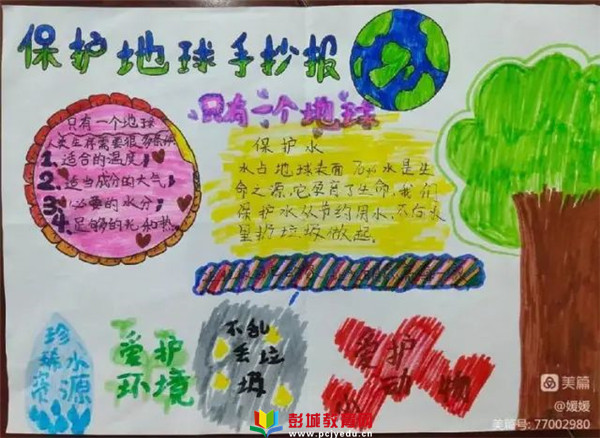 保护地球手抄报
只有一个地球
只有一个地球
人类生存需要很多条件
1.适合的温度;
2.适当成分的大气;
3.必要的水分;
4.足够的光和热。
保护水
水占地球表面70%水是生
命之源,它孕育了生命,我们
保护水从节约用水,不向水
里扔垃圾做起。
珍惜水
资源
爱护
环境
不乱
丢垃
圾
爱护
动物
美篇
@媛媛
美篇号: 77002980
彭城教育网
www.pcjyedu.cn